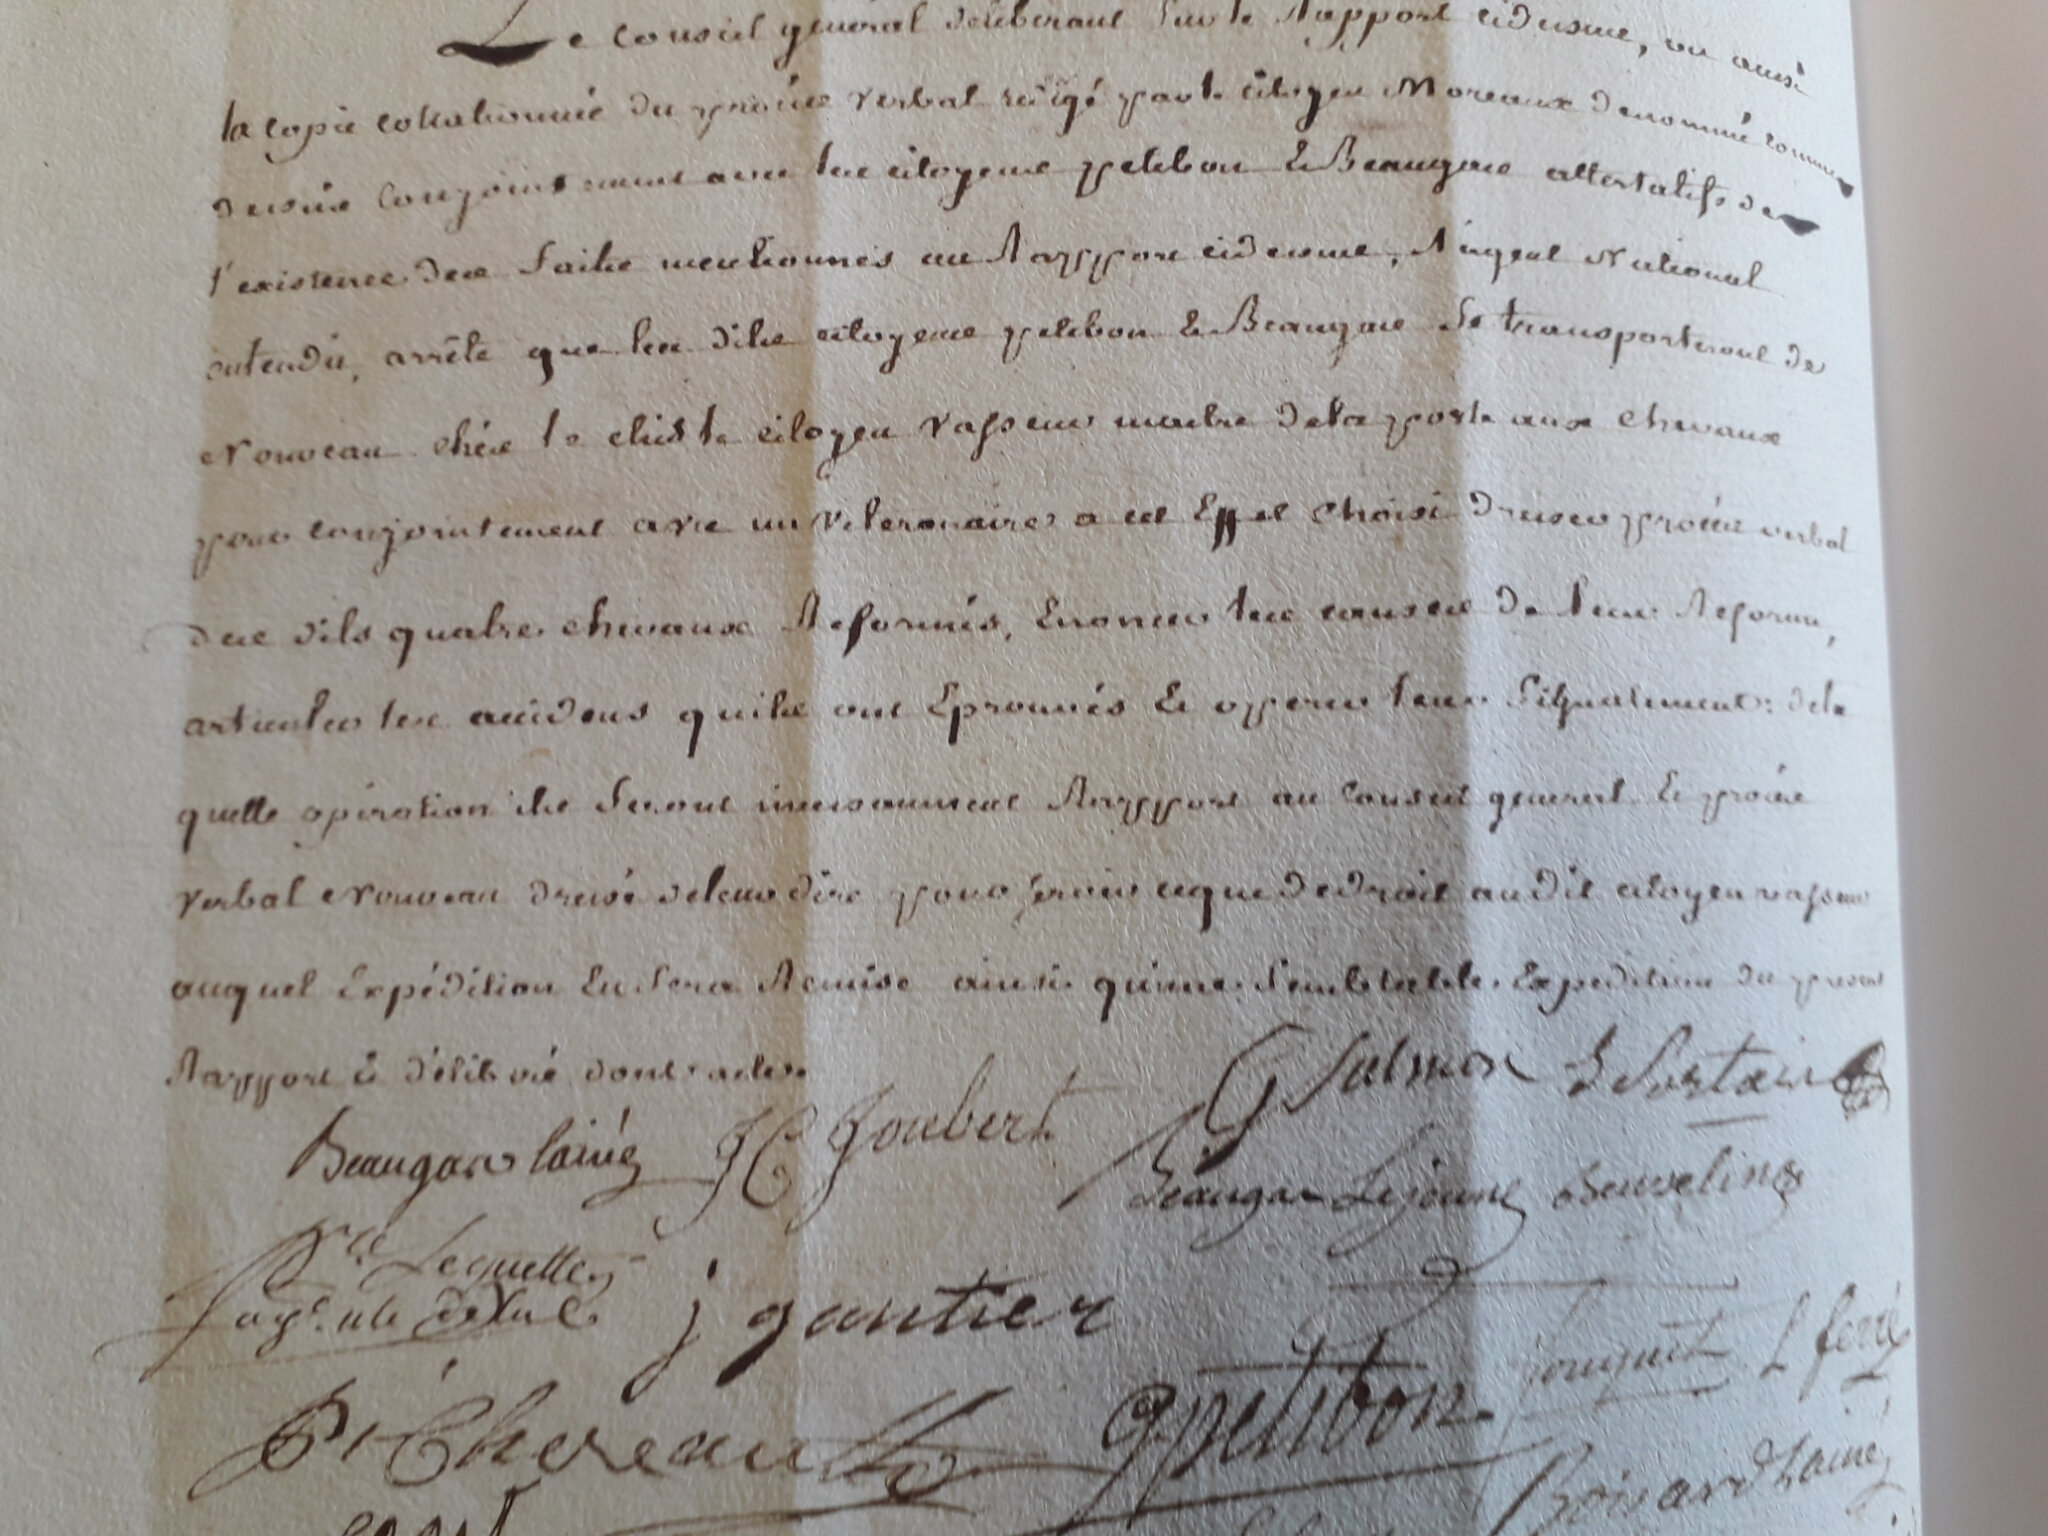 Le Conseil général délibérant sur le Rapport cidessus, vu aussi
la copie collationnée du procès verbal rédigé par le citoyen Moreaux dénommé comme
dessus conjointement avec les citoyens petitbon & Beaugars attestatifs de
l'existence des faits mentionnés au Rapport cidessus, L'agent National
entendu, arrête que les dits citoyens petitbon & Beaugars se transporteront de
Nouveau chés le citoyen Vasseur maitre de la poste aux chevaux
pour conjointement avec un véterenaire a cet Effet choisi dresser procès verbal
des dits quatre chevaux Réformés, Enoncer les causes de leur Réforme,
articuler les accidens quils ont Eprouvés & opperer leur signalement: de la
quelle opération ils feront incessamment Rapport au Conseil general & procès
verbal Nouveau dressé de leur dire pour servir ceque de droit audit citoyen vasseur
auquel Expédition En sera Remise ainsi qu'une semblable Expedition du present
Rapport & délibéré dont acte.
G Salmon Lesortain
Beaugars lainé JC Joubert
Beaugars Lejeune
Lequette
agt. nle j gautier
fouquet L ferré
Chereau petitbon
Boisard Lainé